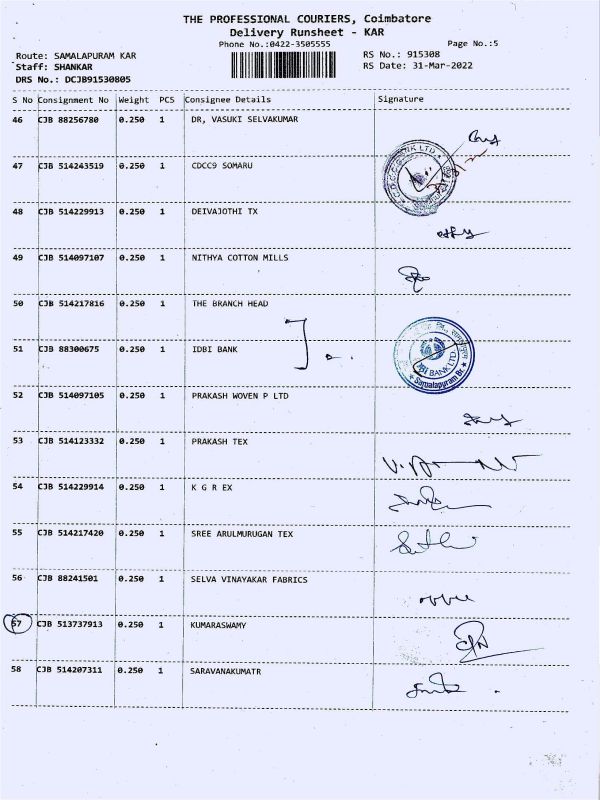 THE PROFESSIONAL COURIERS, Coimbatore
Delivery Runsheet - KAR
Phone No.:0422-3505555
Page No.:5
Route: SAMALAPURAM KAR
RS No.: 915308
Staff: SHANKAR
RS Date: 31-Mar-2022
DRS No.: DCJB91530805
S No Consignment No Weight PCS Consignee Details Signature
46 CJB 88256780 0.250 1 DR, VASUKI SELVAKUMAR
47 CJB 514243519 0.250 1 CDCC9 SOMARU
BANK LTD
48 CJB 514229913 0.250 1 DEIVAJOTHI TX
49 CJB 514097107 0.250 1 NITHYA COTTON MILLS
50 CJB 514217816 0.250 1 THE BRANCH HEAD
51 CJB 88300675 0.250 1 IDBI BANK
IDBI BANK LTD.
Samalapuram Br
52 CJB 514097105 0.250 1 PRAKASH WOVEN P LTD
53 CJB 514123332 0.250 1 PRAKASH TEX
54 CJB 514229914 0.250 1 K G R EX
55 CJB 514217420 0.250 1 SREE ARULMURUGAN TEX
56 CJB 88241501 0.250 1 SELVA VINAYAKAR FABRICS
57 CJB 513737913 0.250 1 KUMARASWAMY
58 CJB 514207311 0.250 1 SARAVANAKUMATR